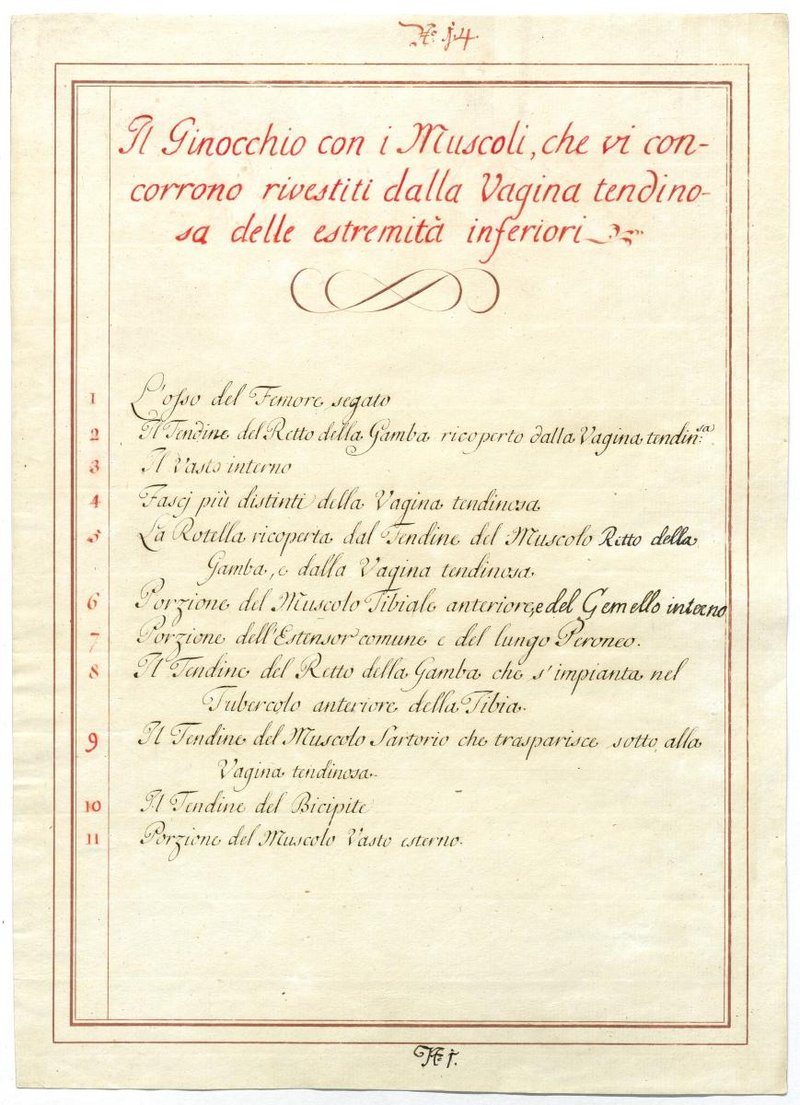 N.º 14
Il Ginocchio con i Muscoli, che vi con-
corrono rivestiti dalla Vagina tendino-
sa delle estremità inferiori
1 L'osso del Femore segato
2 Il Tendine del Retto della Gamba ricoperto dalla Vagina tendin:sa
3 Il Vasto interno
4 Fascj più distinti della Vagina tendinosa
5 La Rotella ricoperta dal Tendine del Muscolo Retto della
Gamba, e dalla Vagina tendinosa
6 Porzione del Muscolo Tibiale anteriore, e del Gemello interno
7 Porzione dell'Estensor comune e del lungo Peroneo.
8 Il Tendine del Retto della Gamba che s'impianta nel
Tubercolo anteriore della Tibia.
9 Il Tendine del Muscolo Sartorio che trasparisce sotto alla
Vagina tendinosa.
10 Il Tendine del Bicipite
11 Porzione del Muscolo Vasto esterno.